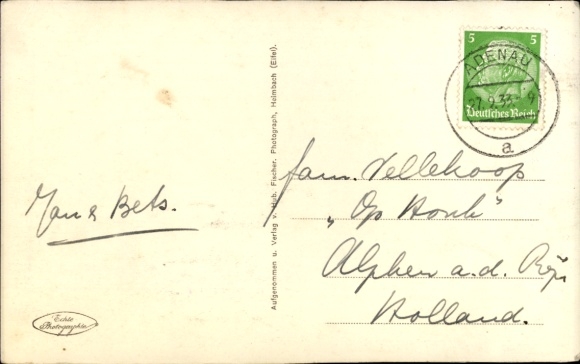 5 5
Deutsches Reich
ADENAU
7.9.33
a
Jan & Bets.
Echte
Photographie
Aufgenommen u. Verlag v. Hub. Fischer. Photograph, Heimbach (Eifel).
fam. Vellekoop
„Op Honk"
Alphen a.d. Rijn
Holland.